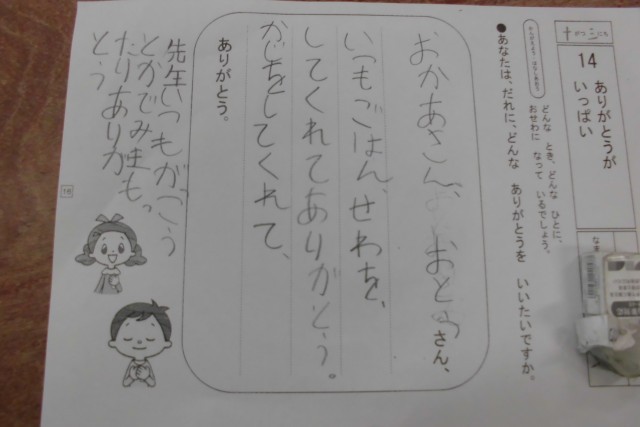 14 ありがとうが
いっぱい
どんな とき、どんな ひとに、
おせわに なって いるでしょう。
●あなたは、だれに、どんな ありがとうを いいたいですか。
おかあさん、おとうさん、
いつもごはん、せわを、
してくれてありがとう。
かじをしてくれて、
ありがとう。
先生いつもがっこう
とかでみまも
たりありが
とう
14